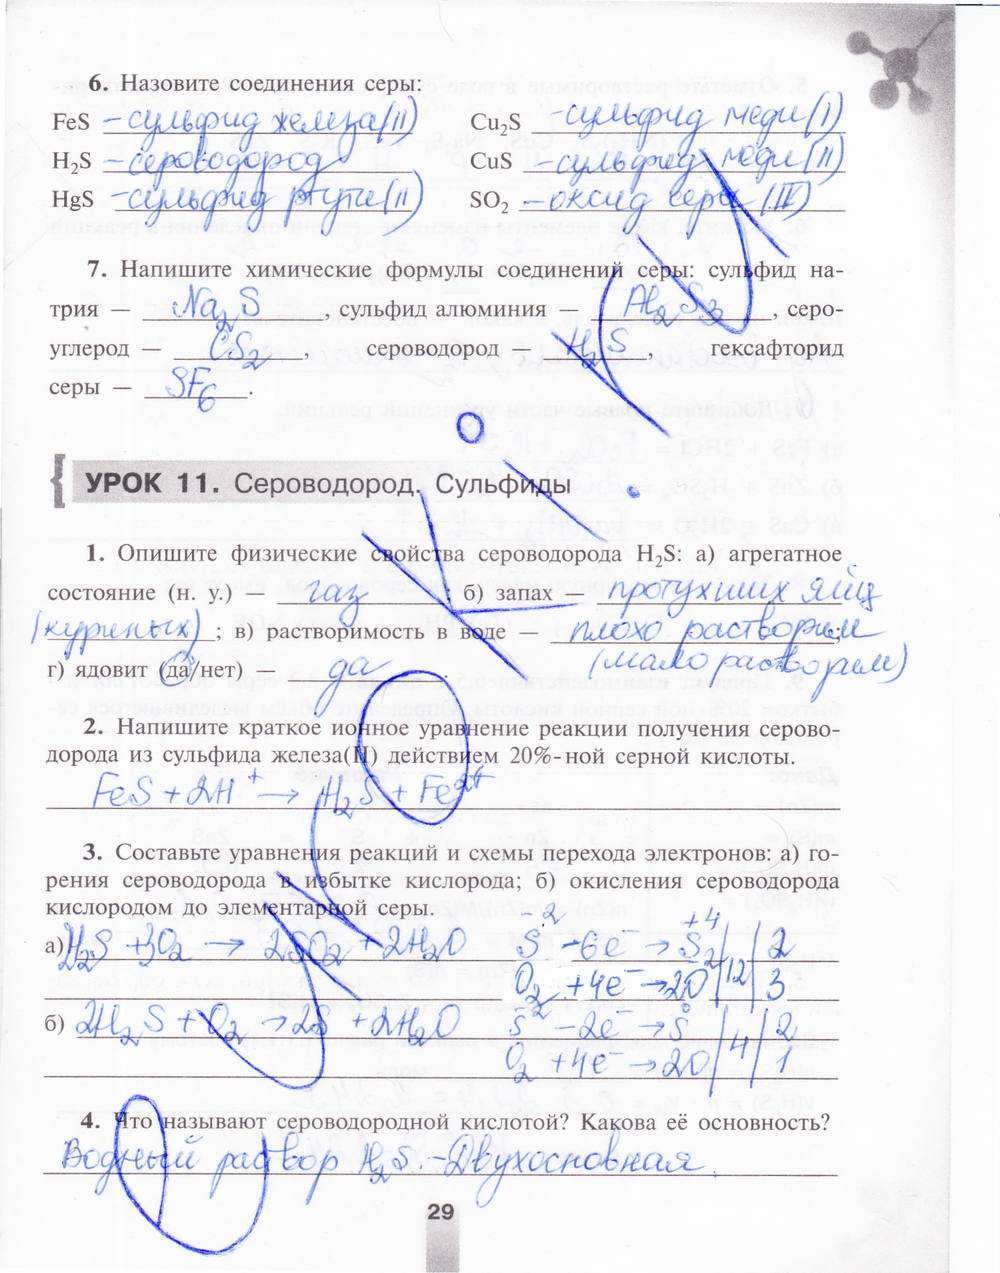 6. Назовите соединения серы:
FeS – сульфид железа(II) Cu₂S – сульфид меди(I)
H₂S – сероводород CuS – сульфид меди(II)
HgS – сульфид ртути(II) SO₂ – оксид серы (IV)
7. Напишите химические формулы соединений серы: сульфид на-
трия — Na₂S, сульфид алюминия Al₂S₃, серо-
углерод — CS₂, сероводород — H₂S, гексафторид
серы — SF₆.
УРОК 11. Сероводород. Сульфиды
1. Опишите физические свойства сероводорода H₂S: а) агрегатное
состояние (н. у.) — газ; б) запах — протухших яиц
(куриных); в) растворимость в воде — плохо растворим;
(мало растворим)
г) ядовит (да/нет) — да.
2. Напишите краткое ионное уравнение реакции получения серово-
дорода из сульфида железа(II) действием 20%-ной серной кислоты.
FeS + 2H⁺ → H₂S + Fe²⁺
3. Составьте уравнения реакций и схемы перехода электронов: а) го-
рения сероводорода в избытке кислорода; б) окисления сероводорода
кислородом до элементарной серы.
а) 2H₂S + 3O₂ → 2SO₂ + 2H₂O S⁻² – 6e⁻ → S⁺⁴ | | 2
O₂ + 4e⁻ → 2O | 12 | 3
б) 2H₂S + O₂ → 2S + 2H₂O S⁻² – 2e⁻ → S⁰ | | 2
O₂ + 4e⁻ → 2O | 4 | 1
4. Что называют сероводородной кислотой? Какова её основность?
Водный раствор H₂S. – Двухосновная.
29